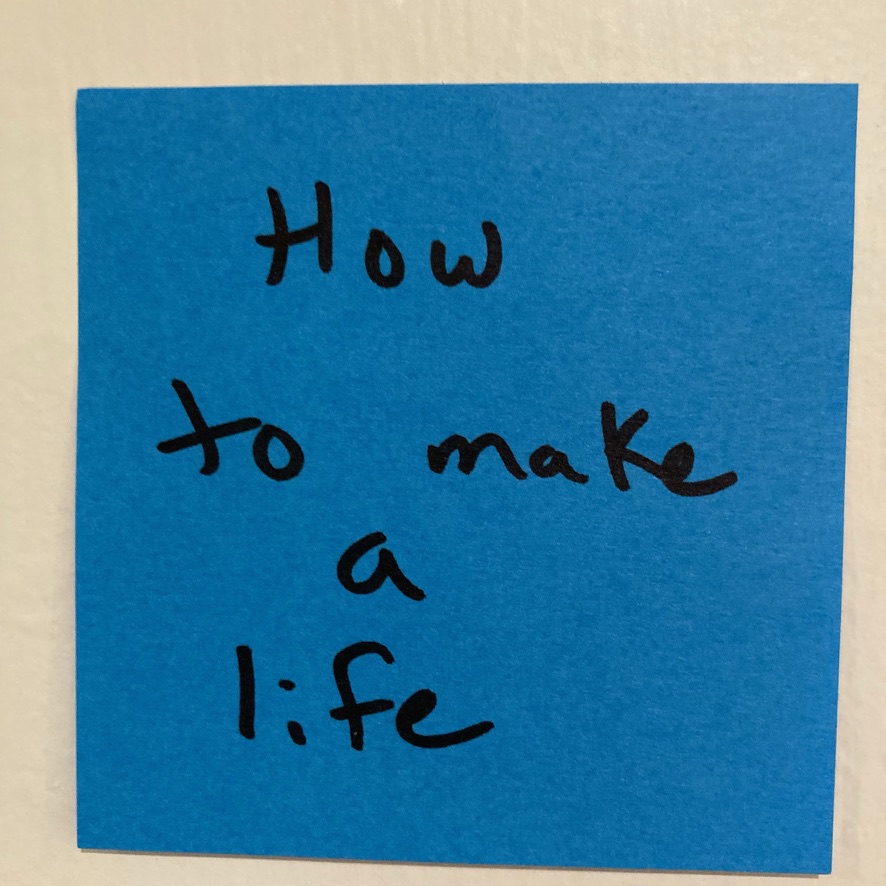 How
to make
a
life